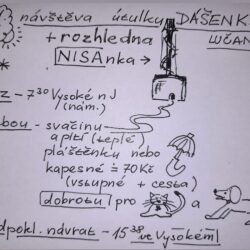 návštěva útulku DÁŠENK
+ rozhledna
NISAnka →
z - 7³⁰ Vysoké n J
(nám.)
bou - svačinu
a pití (teplé)
pláštěnku nebo
kapesné = 70Kč
(vstupné + cesta)
dobrotu pro a
dpokl. návrat - 15³⁸ ve Vysokém!